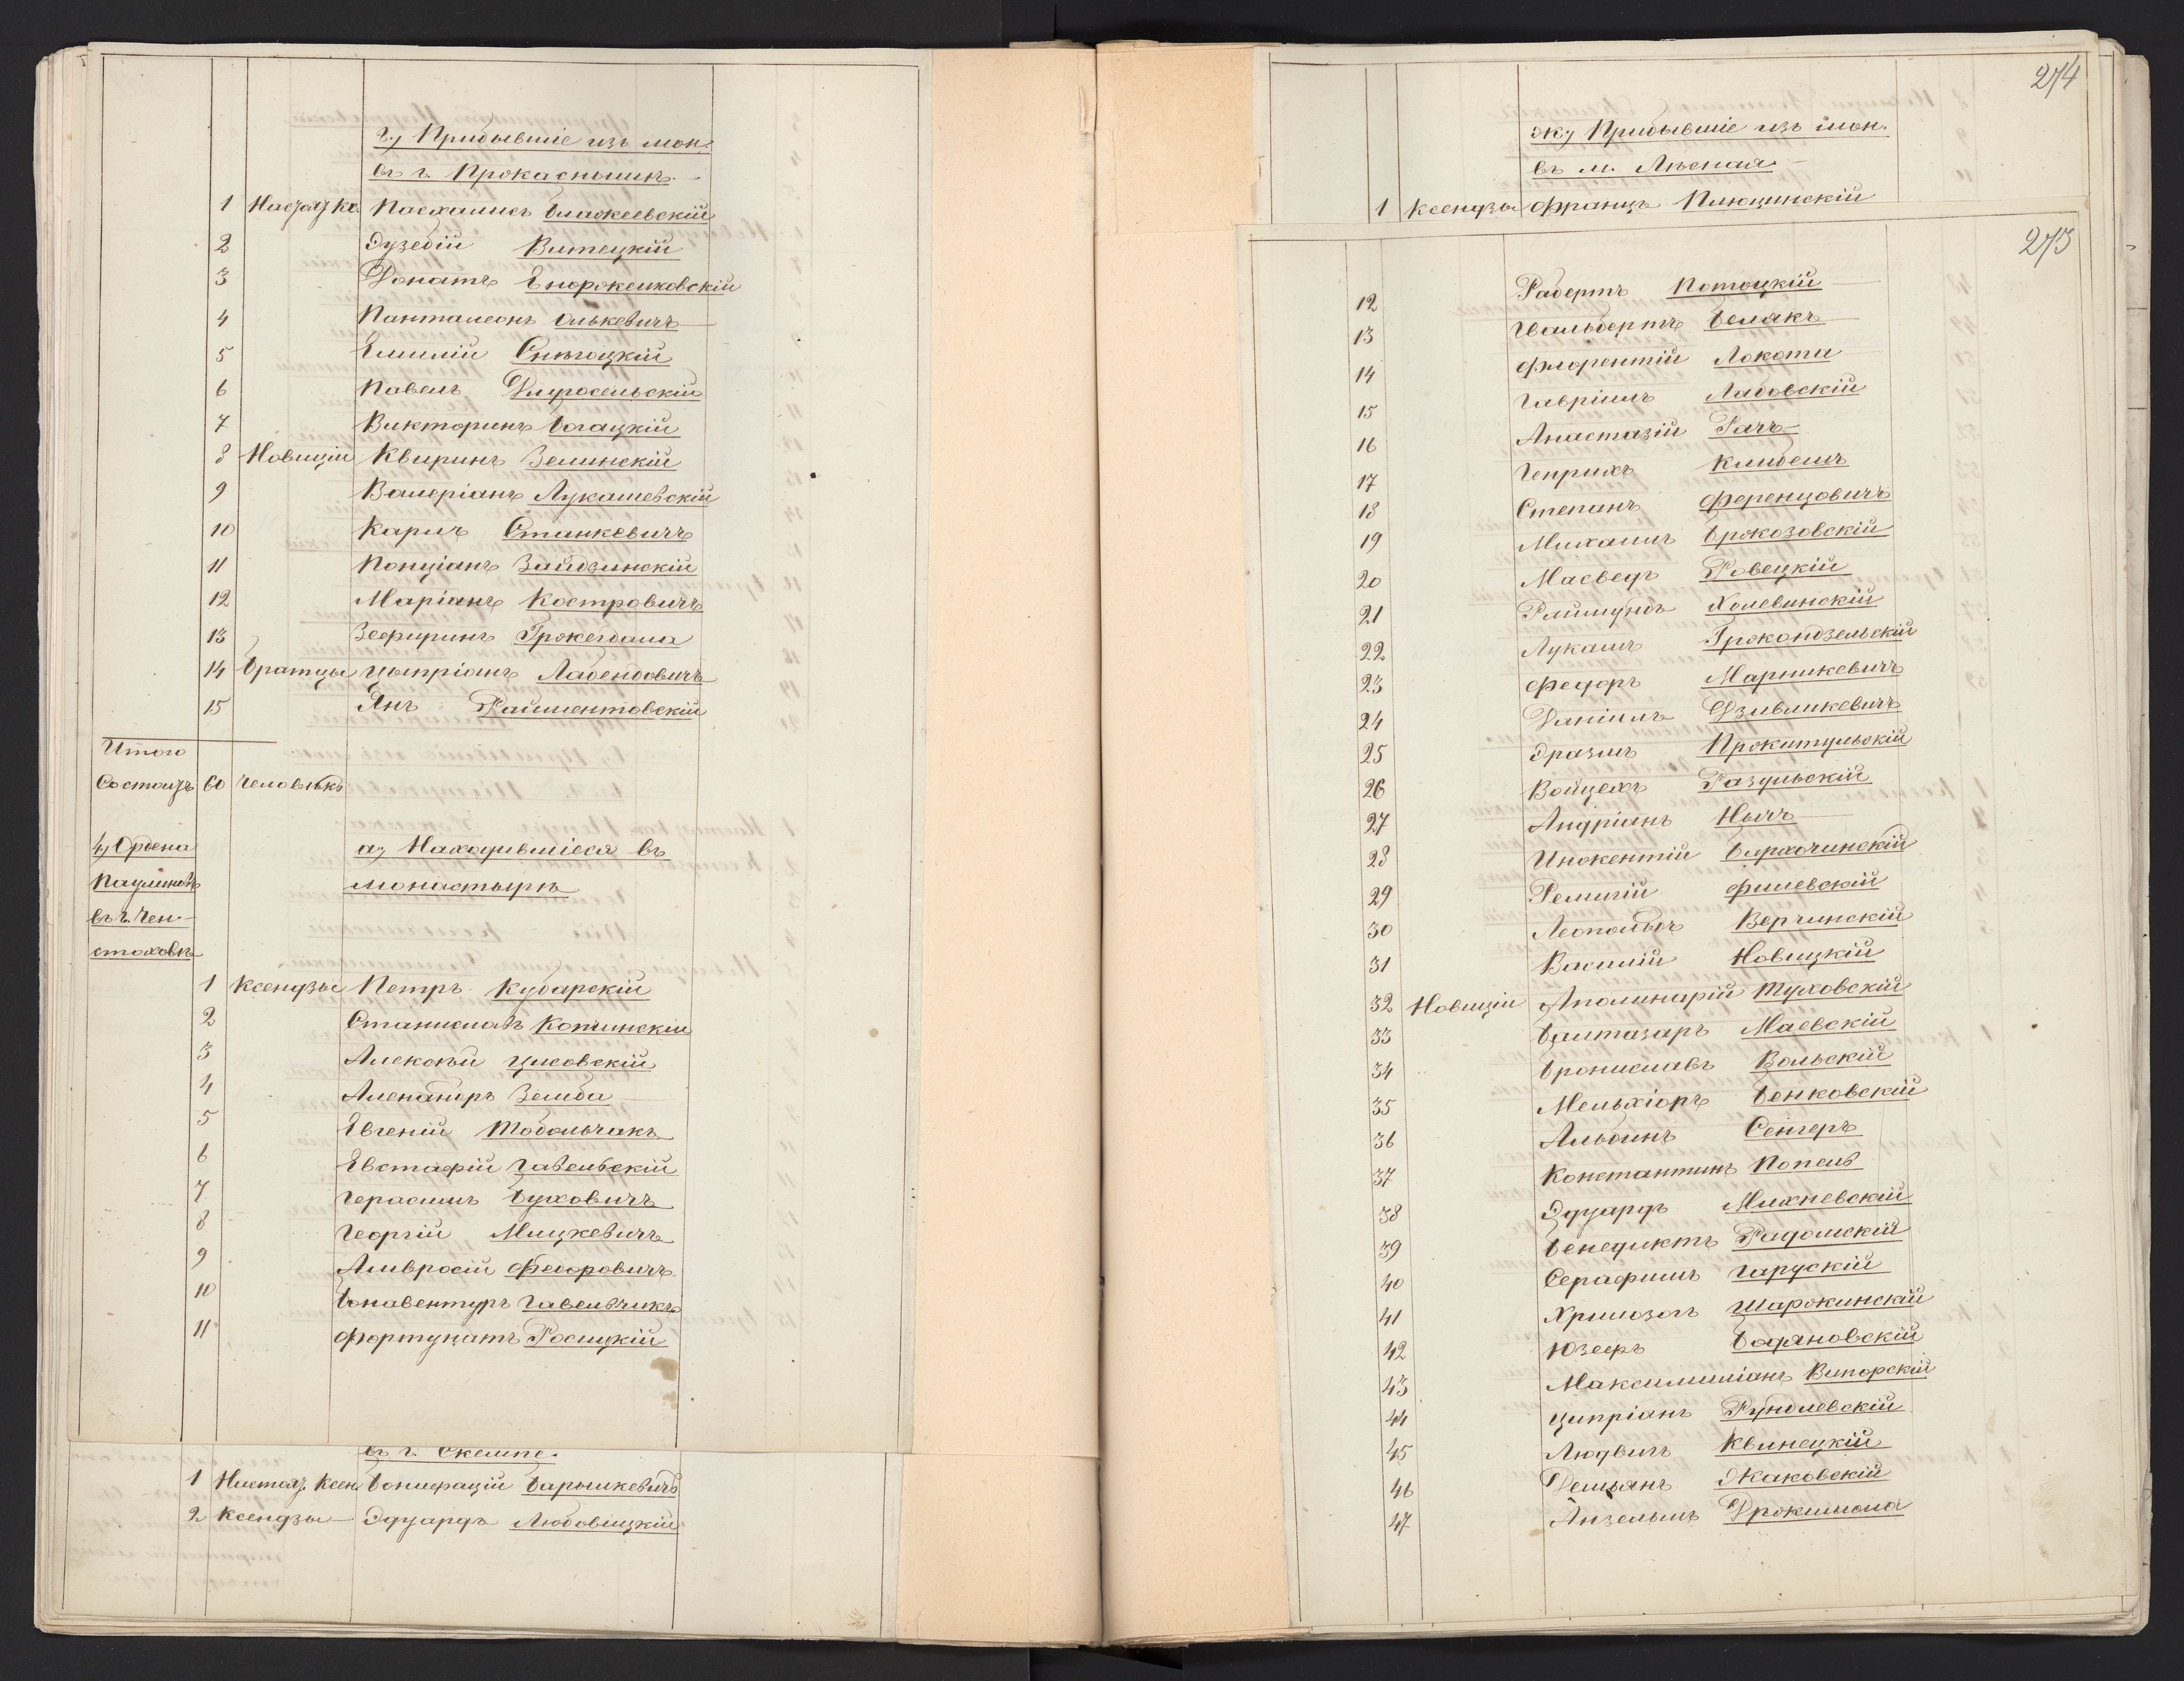 г, Прибывшіе изъ мон.
въ г. Прокасныинъ.
1 Насѣдц Кс. Пасхалисъ Блажеевскій
2 Эузебій Витецкій
3 Донатъ
4 Панталеонъ Олькевичъ
5 Емилій Снѣгоцкій
6 Павелъ Длугосельскій
7 Викторинъ Богацкій
8 Новиціи Квиринъ Зелинскій
9 Валеріанъ Лукашевскій
10 Карлъ Станкевичъ
11 Понціанъ Зайдзинскій
12 Маріанъ Костровичъ
13 Зефиринъ Гржегдала
14 Братцы Цыпріанъ Лабендовичъ
15 Янъ Райментовскій
Итого
Состоитъ 60 человѣкъ
4, Ордена
Паулиновъ
въ г. Чен-
стоховѣ
а, Находившіеся въ
монастырѣ
1 Ксендзы Петръ Кубарскій
2 Станиславъ Копинскій
3 Алексѣй Цисовскій
4 Алекандръ Земба
5 Евгеній Тобольчакъ
6 Евстафій Гавельскій
7 Герасимъ Буховичъ
8 Георгій Мицкевичъ
9 Амвросій Федоровичъ
10 Бонавентуръ Гавельчикъ
11 Фортунатъ Росицкій
въ г. Скемпе.
1 Настоят. Ксен. Бонифацій Барышкевичъ
2 Ксендзы Эдуардъ Любовицкій
274
ж, Прибывшіе изъ мон.
въ м. Лѣсная
1 Ксендзы Францъ Плющинскій
275
12 Робертъ Потоцкій
13 Гвальбертъ Белякъ
14 Флорентій Локота
15 Гавріилъ Лабовскій
16 Анастазій Гачъ
17 Генрихъ Климбелъ
18 Степанъ Ференцовичъ
19 Михаилъ Бржозовскій
20 Ровецкій
21 Раймундъ Холевинскій
22 Лукашъ Гржондзельскій
23 Федоръ Марцинкевичъ
24 Даніилъ Дзивликевичъ
25 Эразмъ Пржитульскій
26 Войцехъ Разульскій
27 Андріанъ Нычъ
28 Инокентій Биржочинскій
29 Ремигій Филевскій
30 Леопольдъ Верчинскій
31 Василій Новицкій
32 Новиціи Аполинарій Туховскій
33 Балтазаръ Маевскій
34 Брониславъ Вольскій
35 Мельхіоръ Бенковскій
36 Альбинъ Сенгеръ
37 Константинъ Попель
38 Эдуардъ Михневскій
39 Бенедиктъ Радомскій
40 Серафимъ Гарускій
41 Хризозомъ Шаржинскій
42 Юзефъ Бояновскій
43 Максимиліанъ Випорскій
44 Ципріанъ Рундлевскій
45 Людвигъ Квинецкій
46 Демьянъ Жаковскій
47 Анзельмъ Држимала